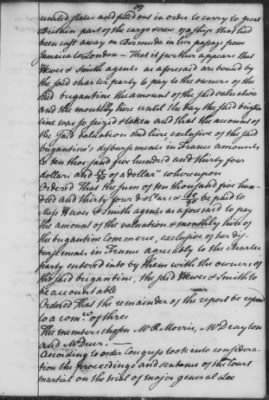 united states and filed out in order to carry to great
Britain part of the cargo crew of a ship that had
been cast away on Bermuda in her passage from
Jamaica to London — That it further appears that
Hewes & Smith agents as aforesaid are bound by
the said charter party to pay to the owners of the
said brigantine the amount of the said valuation
and the monthly hire until the day the said brigan
tine was so seized & taken and that the account of
the said valuation and hire exclusive of the said
brigantine's disbursements in France amounts
to ten thousand five hundred and thirty four
dollars and of a dollar whereupon
Ordered That the sum of ten thousand five hun
dred and thirty four dollars & be paid to
Messrs Hewes & Smith agents as aforesaid to pay
the amount of the valuation & monthly hire of
the brigantine commerce, exclusive of her dis
bursements in France agreeably to the charter
party entered into by them with the owners of
the said brigantine, the said Hewes & Smith to
be accountable
Ordered That the remainder of the report be referred
to a comee of three
The members chosen Mr R Morris, Mr Drayton
and Mr Duer. —
According to order Congress took into considera
tion the proceedings and sentence of the court
martial on the trial of major general Lee